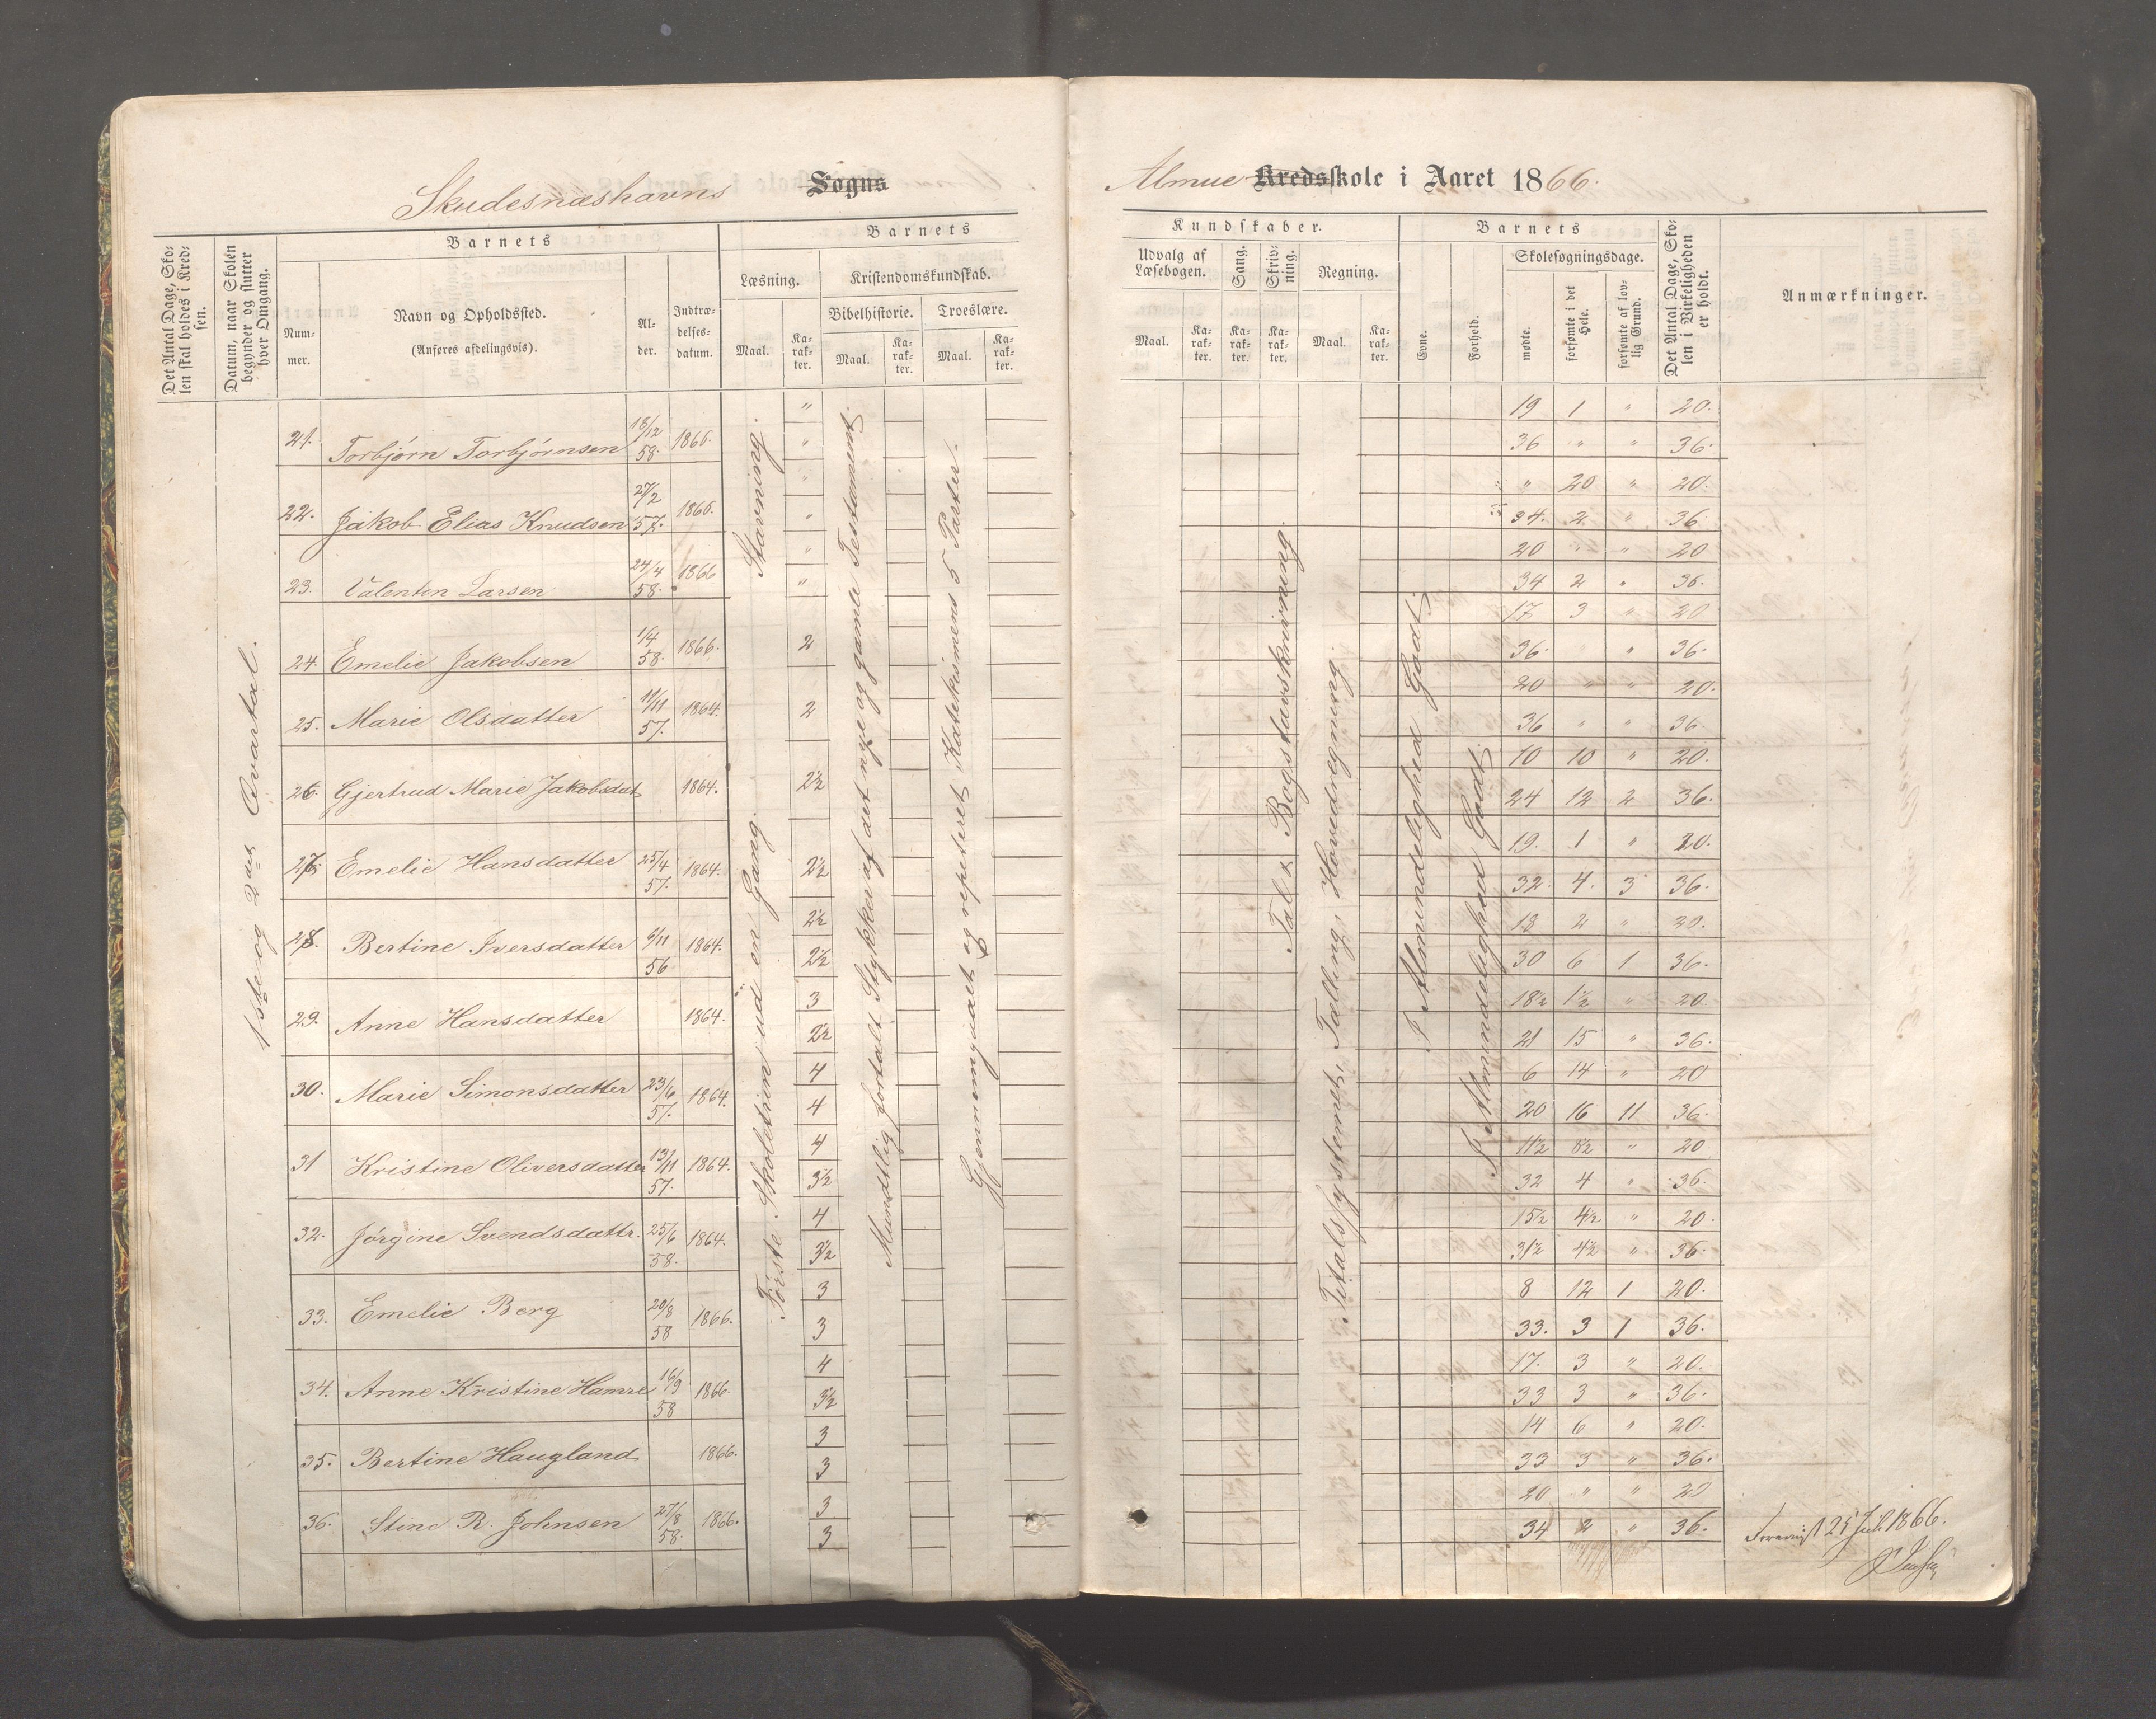 Skudesnæshavns Sogns
Almue Kredsskole i Aaret 1866.
Det Antal Dage, Skolen skal holdes i Kredsen.
Datum, naar Skolen begynder og slutter hver Omgang.
Barnets
Nummer.
Navn og Opholdssted.
(Anføres afdelingsvis).
Alder.
Indtrædelsesdatum.
Barnets
Læsning.
Maal.
Karakter.
Kristendomskundskab.
Bibelhistorie.
Maal.
Karakter.
Troeslære.
Maal.
Karakter.
Kundskaber.
Udvalg af Læsebogen.
Maal.
Karakter.
Sang.
Karakter.
Skrivning.
Karakter.
Regning.
Maal.
Karakter.
Barnets
Evne.
Forhold.
Skolesøgningsdage.
mødte.
forsømte i det Hele.
forsømte af lovlig Grund.
Det Antal Dage, Skolen i Virkeligheden er holdt.
Anmærkninger.
1ste og 2det Qvartal.
21. Torbjørn Torbjørnsen 18/12 58. 1866. " "
22. Jakob Elias Knudsen 27/2 57. 1866. " "
23. Valentin Larsen 24/4 58. 1866 " "
24. Emelie Jakobsen 1/4 58. 1866. 2
25. Marie Olsdatter 11/11 57. 1864. 2
26. Gjertrud Marie Jakobsdat 1864. 2½
27. Emelie Hansdatter 25/4 57. 1864. 2½
28. Bertine Iversdatter 6/11 56 1864. 2½ 2½
29. Anne Hansdatter 1864. 3 2½
30. Marie Simonsdatter 23/6 57. 1864. 4 4
31 Kristine Oliversdatter 13/11 57. 1864. 4 3½
32. Jørgine Svendsdattr. 25/6 58. 1864. 4 3½
33. Emelie Berg 20/8 58 1866. 3 3
34. Anne Kristine Hamre 16/9 58 1866. 4 3½
35. Bertine Haugland 1866. 3 3
36. Stine R. Johnsen 27/8 58. 1866. 3 3
Stavning.
Første Skoletrin ud en Gang.
Mundtlig fortalt Stykker af det nye og gamle Testament.
Gjennemgaaet og repeteret Katekismens 5 Parter.
Tal & Bogstavskrivning.
Titalssystemet, Tælling, Hovedregning.
I Almindelighed Godt.
I Almindelighed Godt.
19 1 " 20.
36 " " 36.
" 20 " 20.
34. 2 " 36
20 " " 20
34 2 " 36.
17 3 " 20
36. " 36.
20 " " 20.
36 " " 36.
10 10 " 20.
24 12 2 36.
19. 1 " 20.
32. 4. 3 36.
18 2 " 20.
30 6 1 36.
18½ 1½ " 20.
21 15 " 36.
6 14 " 20
20 16 11 36.
11½ 8½ " 20
32 4 " 36.
15½ 4½ " 20.
31½ 4½ " 36.
8 12 1 20.
33. 3 1 36.
17. 3 " 20.
33 3 " 36.
14 6 " 20.
33 3 " 36.
20 " " 20
34 2 " 36.
25 Juli 1866.